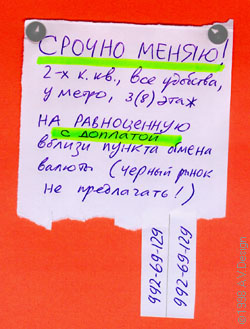 СРОЧНО МЕНЯЮ!
2-х к.кв., все удобства,
у метро, 3(8) этаж
НА РАВНОЦЕННУЮ
с доплатой
вблизи пункта обмена
валюты (черный рынок
не предлагать!)
992-69-129
992-69-129